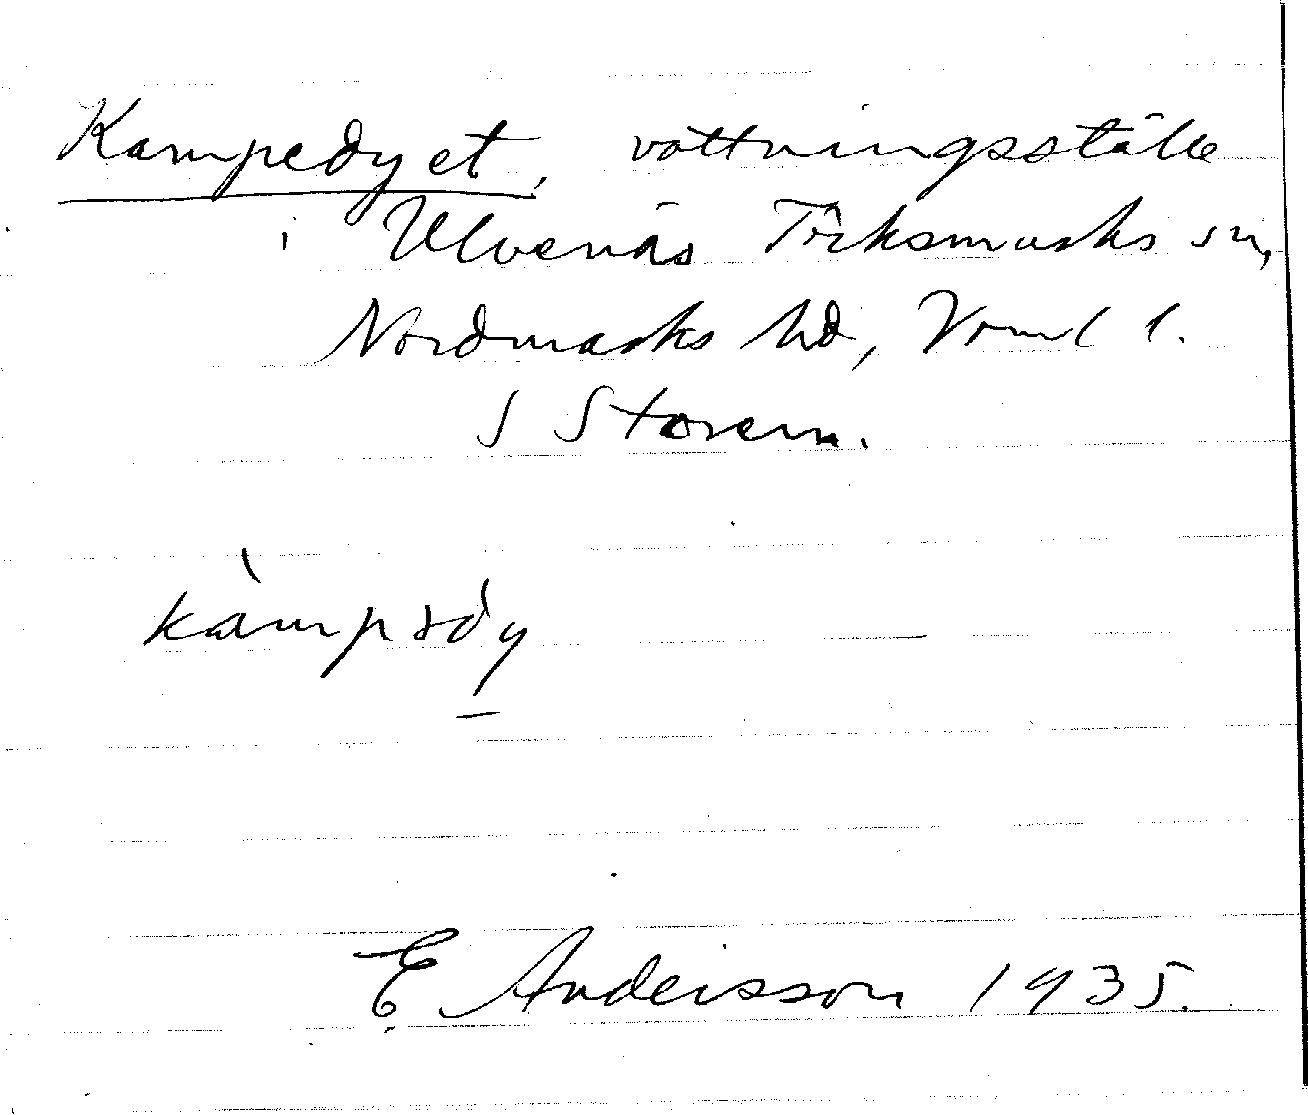 Kampedyet, vattningsställe
i Ulvenäs Törksmarks sn,
Nordmarks hd, Vrml l.
S Storem.
kàmpədý
E Andersson 1935.